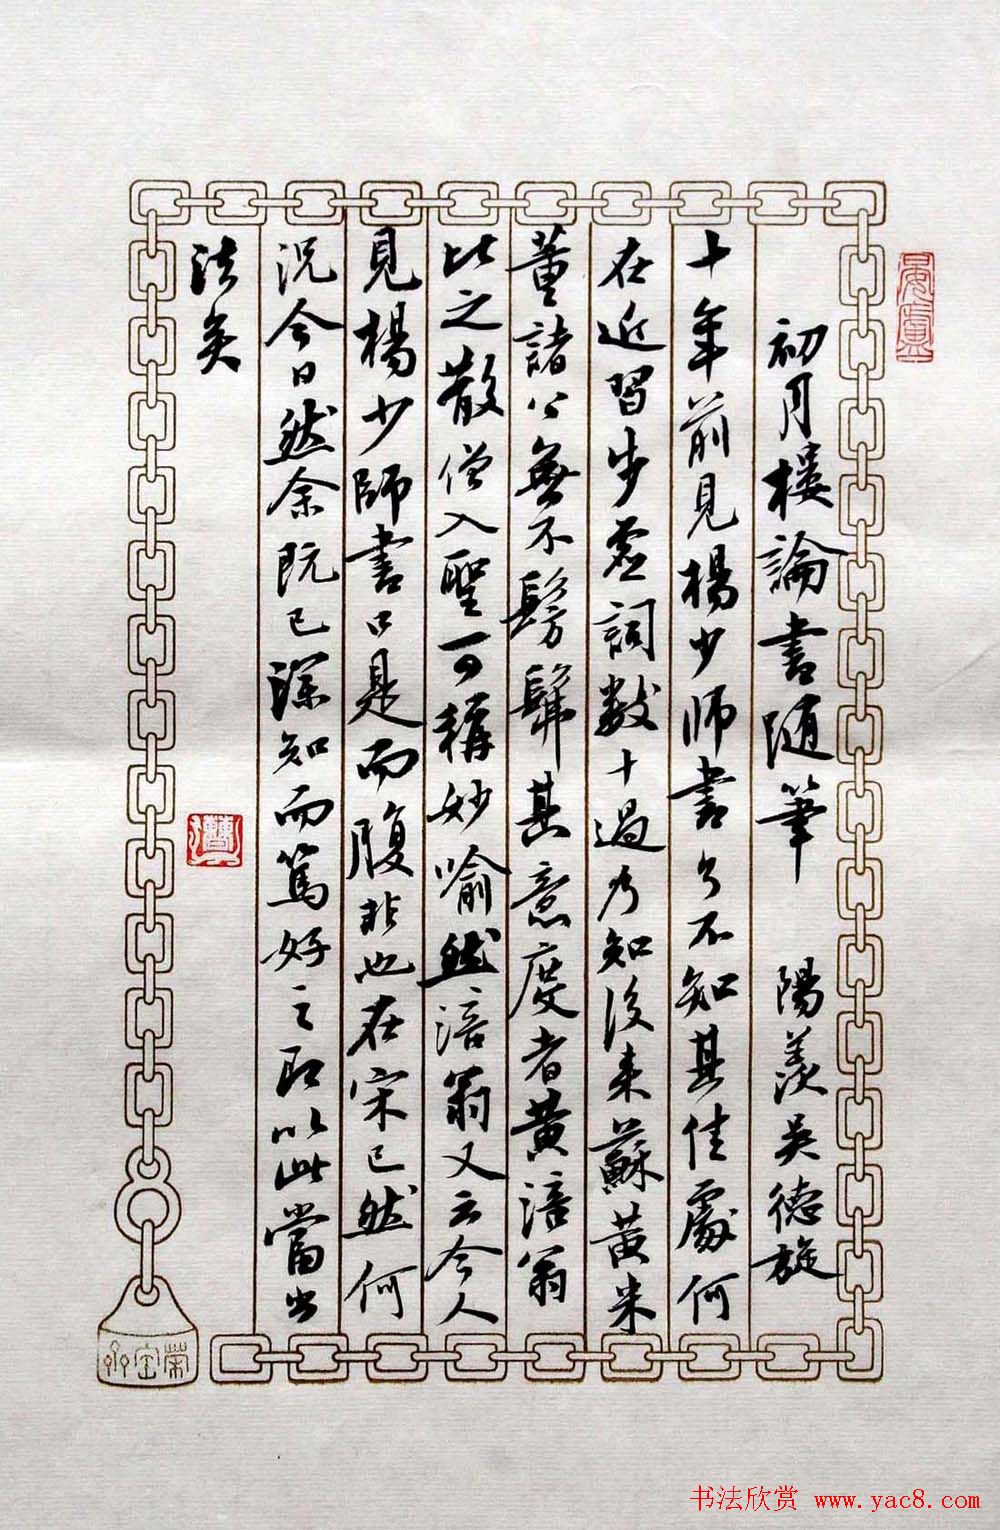 初月樓論書隨筆　陽羨吳德旋
十年前見楊少師書了不知其佳處何
在近習步虛詞數十過乃知後來蘇黃米
董諸公無不髣髴其意度者黃涪翁
比之散僧入聖可稱妙喻然涪翁又云今人
見楊少師書口是而腹非也在宋已然何
況今日然余既已深知而篤好之即以此當出
法矣
榮寶齋
书法欣赏 www.yac8.com